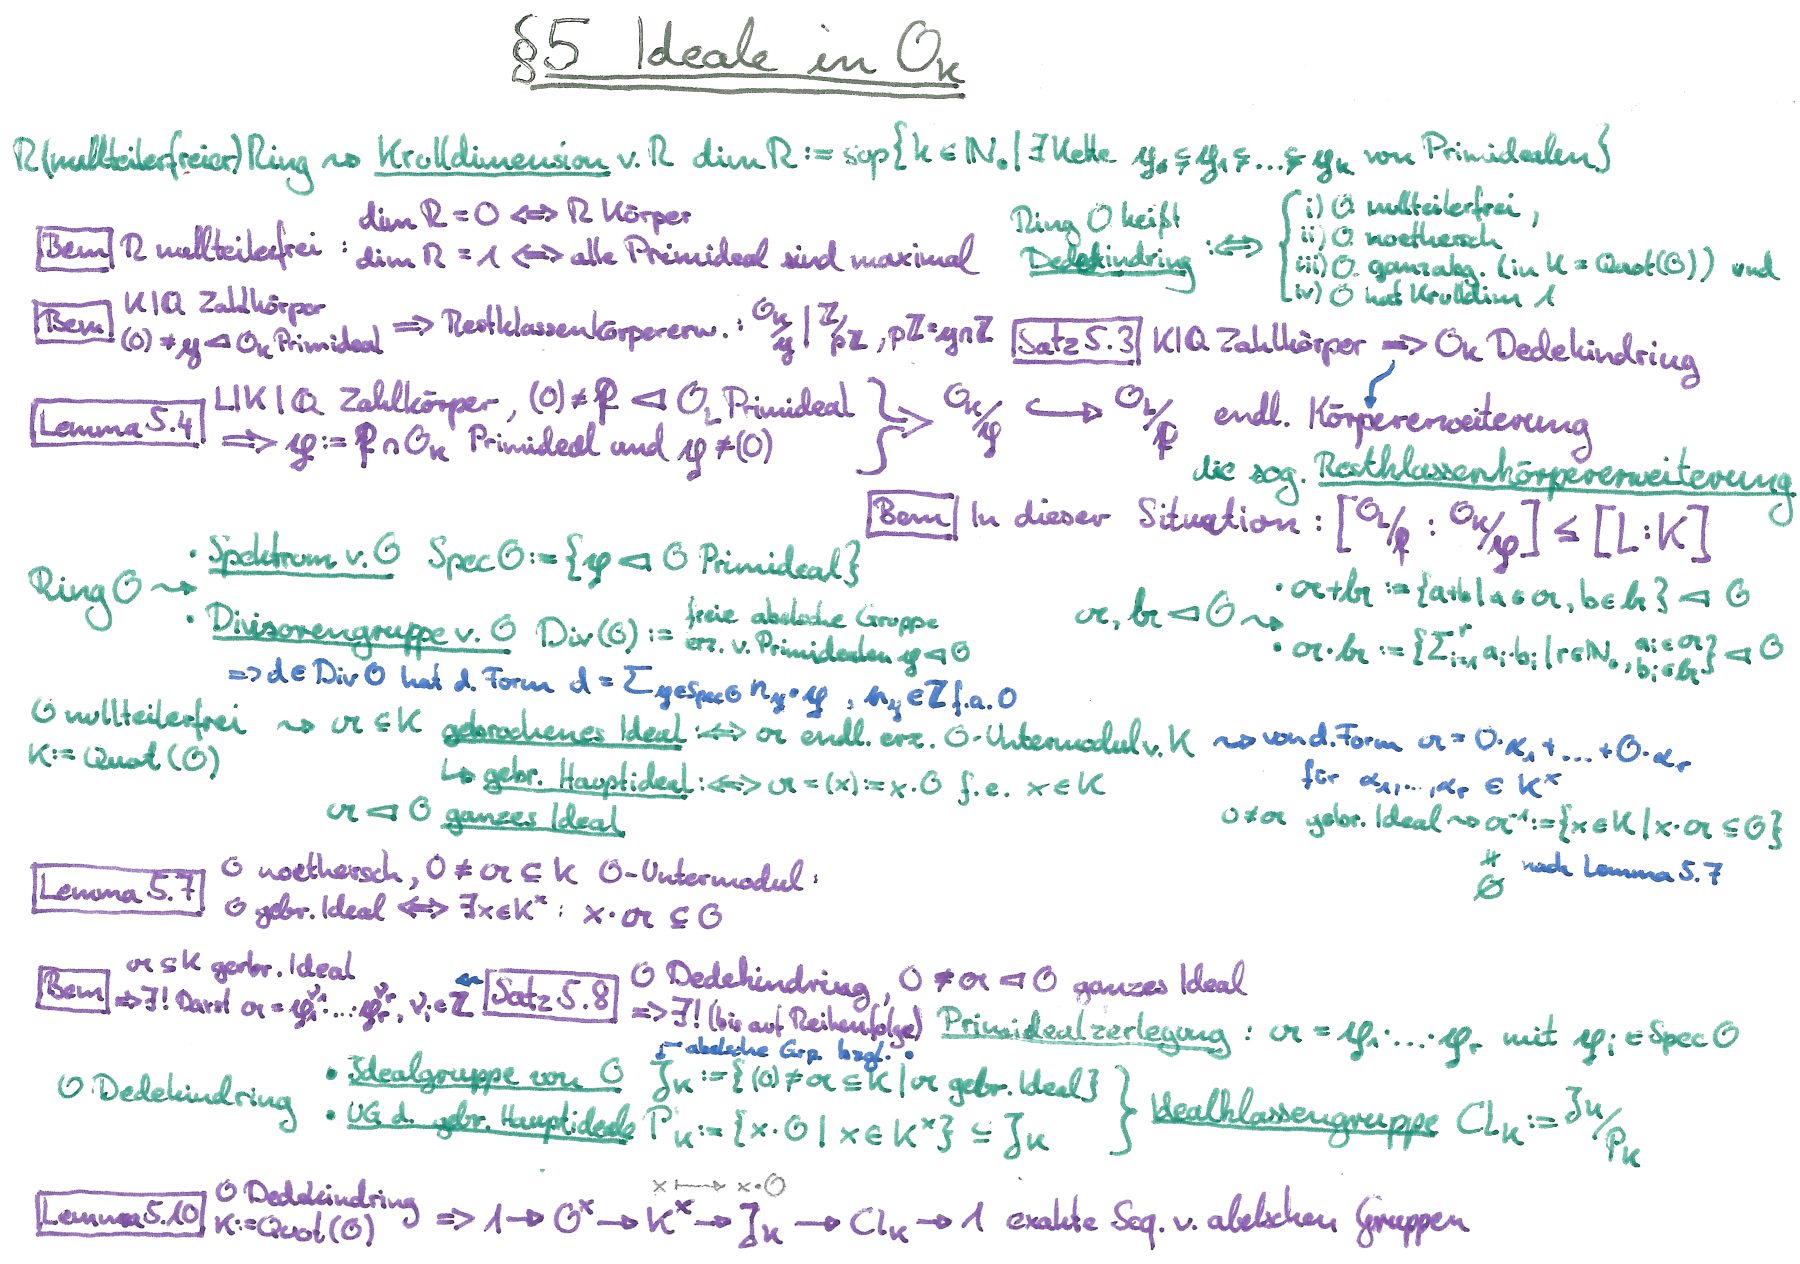 §5 Ideale in O_K
R (nullteilerfreier) Ring ⇝ Krulldimension v. R dim R := sup{k ∈ ℕ₀ | ∃ Kette 𝔭₀ ⊊ 𝔭₁ ⊊ ... ⊊ 𝔭_k von Primidealen}
Bem R nullteilerfrei : dim R = 0 ⇔ R Körper
dim R = 1 ⇔ alle Primideal sind maximal
Ring O heißt Dedekindring :⇔
i) O nullteilerfrei,
ii) O noethersch
iii) O ganzabg. (in K = Quot(O)) und
iv) O hat Krulldim 1
Bem K|ℚ Zahlkörper
(0) ≠ 𝔭 ⊲ O_K Primideal ⇒ Restklassenkörpererw. : O_K/𝔭 | ℤ/pℤ, pℤ = 𝔭∩ℤ
Satz 5.3 K|ℚ Zahlkörper ⇒ O_K Dedekindring
Lemma 5.4 L|K|ℚ Zahlkörper, (0) ≠ 𝔓 ⊲ O_L Primideal
⇒ 𝔭 := 𝔓 ∩ O_K Primideal und 𝔭 ≠ (0)
⇒ O_K/𝔭 ↪ O_L/𝔓 endl. Körpererweiterung
die sog. Restklassenkörpererweiterung
Bem In dieser Situation : [O_L/𝔓 : O_K/𝔭] ≤ [L:K]
Ring O ⇝
• Spektrum v. O Spec O := {𝔭 ⊲ O Primideal}
• Divisorengruppe v. O Div(O) := freie abelsche Gruppe
erz. v. Primidealen 𝔭 ⊲ O
⇒ d ∈ Div O hat d. Form d = Σ_{𝔭∈Spec O} n_𝔭 · 𝔭, n_𝔭 ∈ ℤ f.a. 0
𝔞, 𝔟 ⊲ O ⇝
• 𝔞+𝔟 := {a+b | a ∈ 𝔞, b ∈ 𝔟} ⊲ O
• 𝔞·𝔟 := {Σ_{i=1}^r a_i·b_i | r ∈ ℕ₀, a_i ∈ 𝔞, b_i ∈ 𝔟} ⊲ O
O nullteilerfrei ⇝ 𝔞 ⊆ K gebrochenes Ideal :⇔ 𝔞 endl. erz. O-Untermodul v. K ⇝ von d. Form 𝔞 = O·α₁ + ... + O·α_r
K := Quot(O)
für α₁,...,α_r ∈ K^×
↳ gebr. Hauptideal :⇔ 𝔞 = (x) := x·O f.e. x ∈ K
𝔞 ⊲ O ganzes Ideal
0 ≠ 𝔞 gebr. Ideal ⇝ 𝔞⁻¹ := {x ∈ K | x·𝔞 ⊆ O}
≠ ∅ nach Lemma 5.7
Lemma 5.7 O noethersch, 0 ≠ 𝔞 ⊆ K O-Untermodul :
O gebr. Ideal ⇔ ∃x∈K^× : x·𝔞 ⊆ O
Bem 𝔞 ⊆ K gerbr. Ideal
⇒ ∃! Darst 𝔞 = 𝔭₁^{ν₁}·...·𝔭_r^{ν_r}, ν_i ∈ ℤ
←
Satz 5.8 O Dedekindring, 0 ≠ 𝔞 ⊲ O ganzes Ideal
⇒ ∃! (bis auf Reihenfolge) Primidealzerlegung : 𝔞 = 𝔭₁·...·𝔭_r mit 𝔭_i ∈ Spec O
abelsche Grp. bzgl. •
O Dedekindring
• Idealgruppe von O J_K := {(0) ≠ 𝔞 ⊆ K | 𝔞 gebr. Ideal}
• UG d. gebr. Hauptideale P_K := {x·O | x ∈ K^×} ⊆ J_K
Idealklassengruppe Cl_K := J_K/P_K
Lemma 5.10 O Dedekindring
K := Quot(O)
x ↦ x·O
⇒ 1 → O^× → K^× → J_K → Cl_K → 1 exakte Seq. v. abelschen Gruppen